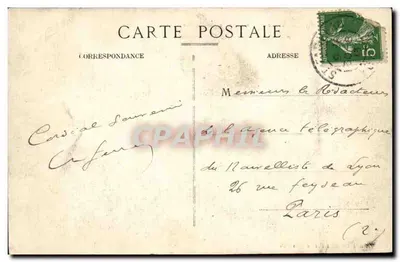 CARTE POSTALE
CORRESPONDANCE
ADRESSE
Cordial souvenir
Messieurs les Rédacteurs
de l'agence télégraphique
du Nouvelliste de Lyon
26 rue Feydeau
Paris
(2)
CPAPHIL
5